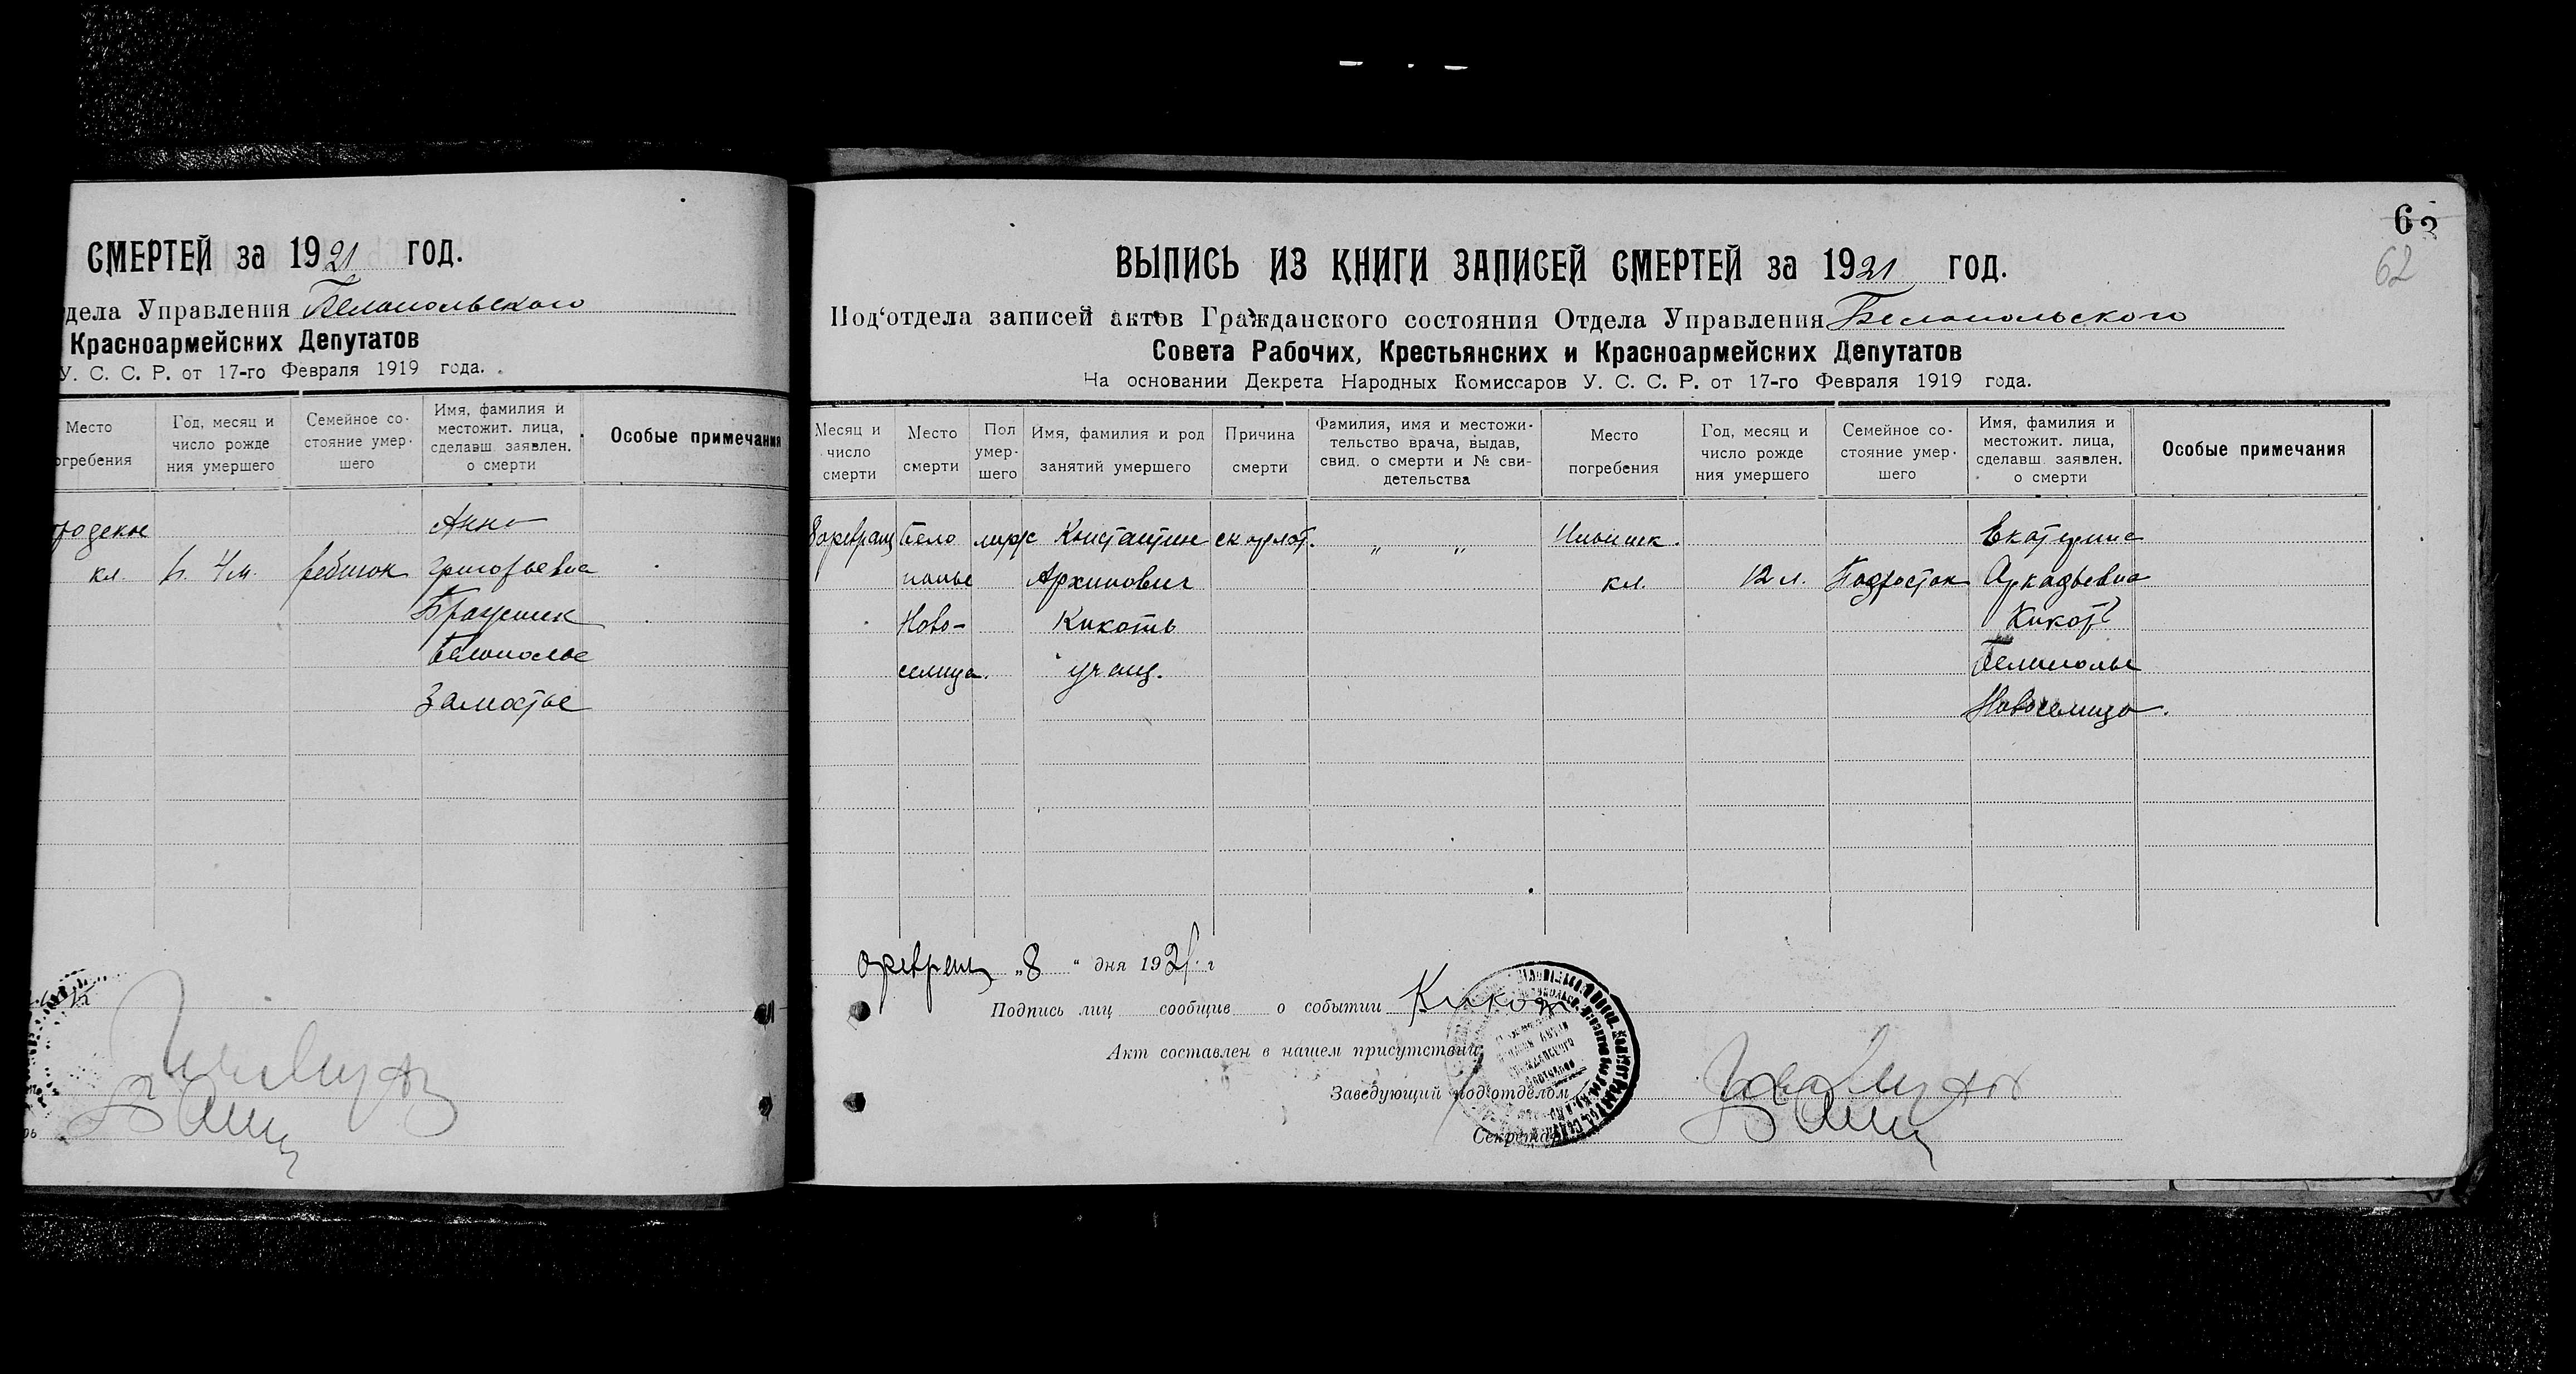 СМЕРТЕЙ за 1921 год.
дела Управления Белопольского
Красноармейских Депутатов
У. С. С. Р. от 17-го Февраля 1919 года.
Место
огребения
Год, месяц и
число рожде
ния умершего
Семейное со-
стояние умер-
шего
Имя, фамилия и
местожит. лица,
сделавш. заявлен.
о смерти
Особые примечания
Анна
кл. 4 м. ребенок Григорьевна
Белополье
Замостье
63
62
ВЫПИСЬ ИЗ КНИГИ ЗАПИСЕЙ СМЕРТЕЙ за 1921 год.
Под'отдела записей актов Гражданского состояния Отдела Управления Белопольского
Совета Рабочих, Крестьянских и Красноармейских Депутатов
На основании Декрета Народных Комиссаров У. С. С. Р. от 17-го Февраля 1919 года.
Месяц и
число
смерти
Место
смерти
Пол
умер-
шего
Имя, фамилия и род
занятий умершего
Причина
смерти
Фамилия, имя и местожи-
тельство врача, выдав,
свид. о смерти и № сви-
детельства
Место
погребения
Год, месяц и
число рожде
ния умершего
Семейное со-
стояние умер-
шего
Имя, фамилия и
местожит. лица,
сделавш. заявлен.
о смерти
Особые примечания
8 февраля Бело Константин скарлат. " " Екатерина
полье Архипович кл. 12 л. Подросток Аркадьевна
Ново- Кикоть Кикоть
селица. учащ. Белополье
Новоселица.
февраля „8 “ дня 1921 г
Подпись лиц сообщив о событии Кикот
Акт составлен в нашем присутствии
Заведующий под'отделом
Секретарь